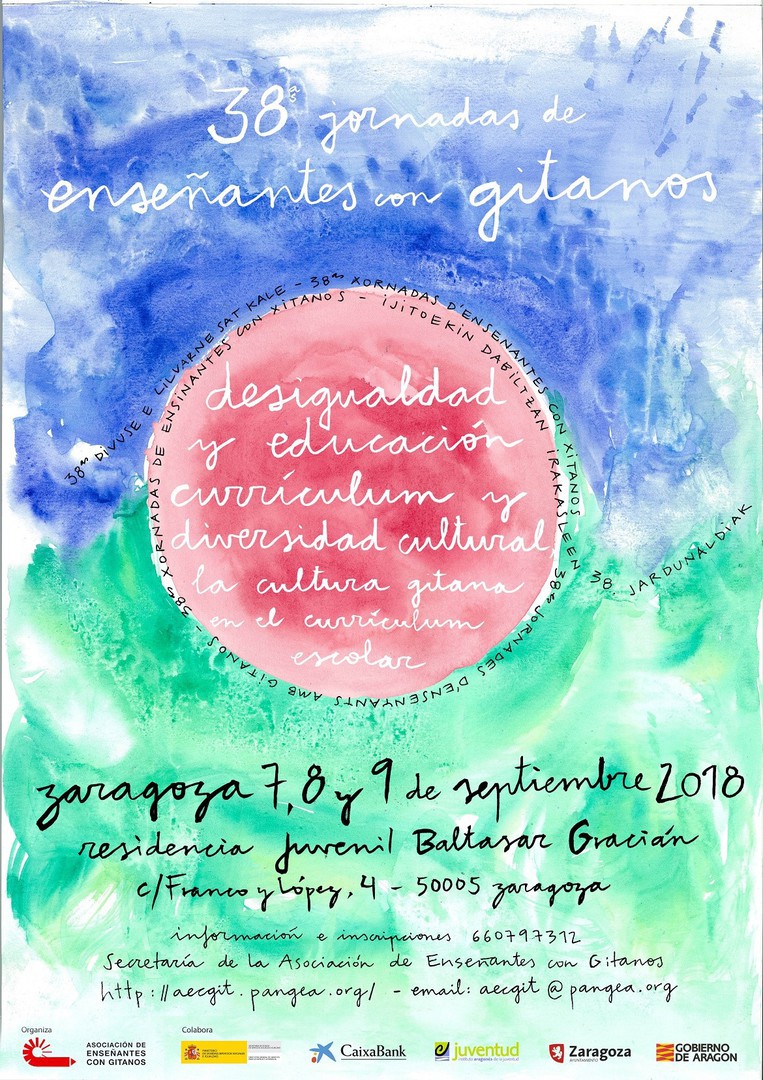 38ªs jornadas de
enseñantes con gitanos
38ªs DIVUSE E LILVARNE SAT KALE - 38ªs XORNADAS D'ENSENANTES CON XITANOS
38ªs XORNADAS DE ENSINANTES CON XITANOS - IJITOEKIN DABILTZAN IRAKASLEEN 38. JARDUNALDIAK
38ªs JORNADES D'ENSENYANTS AMB GITANOS -
desigualdad
y educación
currículum y
diversidad cultural,
la cultura gitana
en el currículum
escolar
zaragoza 7, 8 y 9 de septiembre 2018
residencia Juvenil Baltasar Gracián
c/Franco y López, 4 - 50005 zaragoza
información e inscripciones 660797312
Secretaría de la Asociación de Enseñantes con Gitanos
http://aecgit.pangea.org/ - email: aecgit@pangea.org
Organiza
Colabora
ASOCIACIÓN DE
ENSEÑANTES
CON GITANOS
CaixaBank
juventud
instituto aragonés de la juventud
Zaragoza
AYUNTAMIENTO
GOBIERNO
DE ARAGON